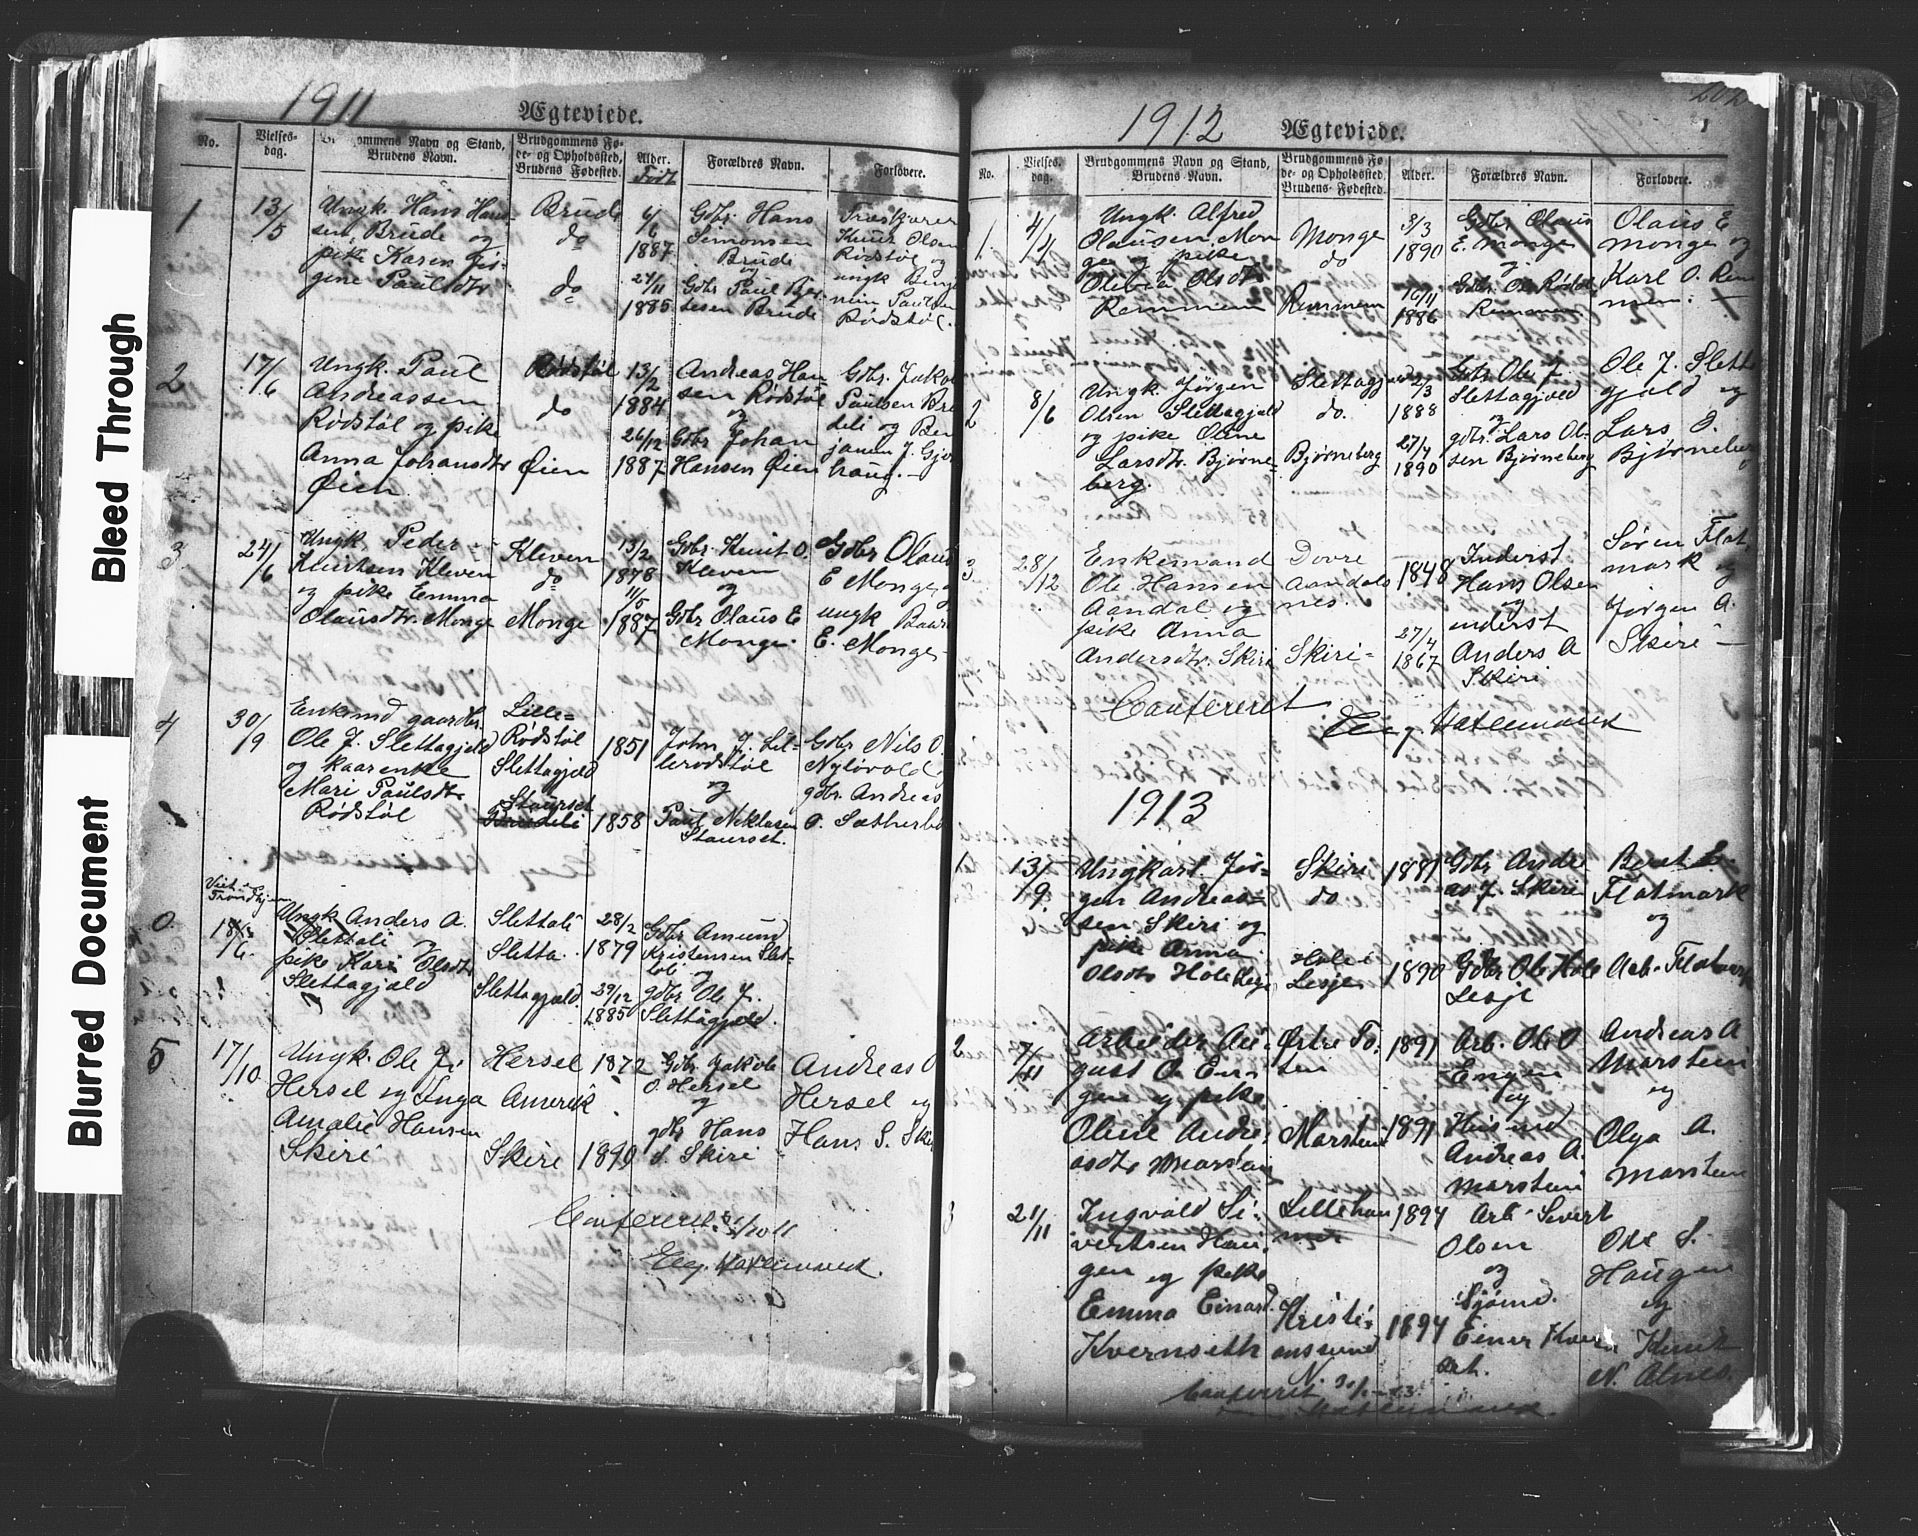 Bleed Through
Blurred Document
1911
Ægteviede.
No.
Vielses-
dag.
Brudgommens Navn og Stand,
Brudens Navn.
Brudgommens Fø-
de- og Opholdssted,
Brudens Fødested.
Alder.
Født
Forældres Navn.
Forlovere.
1
13/5
Ungk. Hans Han-
sen Brude og
pike Karen Jør-
gine Paulsdtr
Brude
do
do
6/6
1887
24/11
1885
Gdbr. Hans
Simonsen
Brude
og
Gdbr Paul Ber-
tesen Brude
Knut Olsen
Rødstøl og
ungk Benja-
min Paulsen
Rødstøl.
2
17/6
Ungk. Paul
Andreassen
Rødstøl og pike
Anna Johansdtr
Øien
Rødstøl
do
Øien
13/2
1884
26/12
1887
Andreas Han-
sen Rødstøl
og
Gdbr Johan
Hansen Øien
Gdbr. Jakob
Paulsen Bre
deli og Ben
jamin J. Gjer
haug.
3
24/6
Ungk. Peder
Knutsen Kleven
og pike Emma
Olausdtr. Monge
Kleven
do
Monge
13/2
1878
11/5
1887
Gdbr. Knut O.
Kleven
og
Gdbr Olaus E
Monge
Gdbr Olaus
E Monge
ungk
E. Monge
4
30/9
Enkemd gaardbr.
Ole J. Slettagjeld
og kaarenke
Mari Paulsdtr
Rødstøl
Lille-
Rødstøl
Slettagjeld
Staurset
Bredeli
1851
1858
John J. Lil-
lerødstøl
og
Paul Nicklasen
Staurset.
Gdbr Nils O.
Nylivold
gdbr. Andreas
O. Sætherbø
Viet i
Trondhjem
0.
Ungk Anders A.
Slettali og
pike Kari Olsdtr
Slettagjeld
Slettali
Sletta
Slettagjeld
28/2
1879
29/12
1885
Gdbr Amund
Kristensen Slet-
tali
og
gdbr Ole J.
Slettagjeld.
5
17/10
Ungk. Ole J.
Hersel og Inga
Amalie Hansen
Skiri
Hersel
Amerik
Skiri
1872
1890
Gdbr Jakob
O. Hersel
og
gdbr Hans
S. Skiri
Andreas O
Hersel og
Hans S. Ski
Confereret
1912
Ægteviede.
No.
Vielses-
dag.
Brudgommens Navn og Stand,
Brudens Navn.
Brudgommens Fø-
de- og Opholdssted,
Brudens Fødested.
Alder.
Forældres Navn.
Forlovere.
1.
Ungk. Alfred
Olausen Mon
ge og pike
Olsdtr
Remmem
Monge
do
Remmem
3/3
1890
16/11
1886
Gdbr Olaus
E. Monge
og
Remmem
Olaus E
Monge og
Karl O. Rem
mem.
2
8/6
Ungk. Jørgen
Olsen Slettagjeld
og pike Oline
Larsdtr. Bjørne-
berg.
Slettagjeld
do.
Bjørneberg
2/3
1888
27/4
1890
Gdbr Ole J.
Slettagjeld
og
gdbr. Lars Ol-
sen Bjørneberg
Ole J. Sletta
gjeld og
Lars O.
Bjørneberg
3.
28/12
Enkemand
Ole Hansen
Aandal og
pike Anna
Andersdtr. Skiri
Dovre
Aandals
nes.
Skiri
1848
27/4
1867
Inderst
Hans Olsen
og
inderst
Anders A
Skiri
Søren Flat
mark og
Jørgen A.
Skiri
Confereret
1913
1.
13/9
Ungkarl Jør-
gen Andreas-
sen Skiri og
pike Anna
Olsdtr Hole Lesje
Skiri
do
Hole i
Lesje
1881
1890
Gdbr Andre
as J. Skiri
og
Gdbr Ole Hole
Lesje
Berit E.
Flatmark
og
Flatmark
2
7/11
Arbeider Au-
gust O. En-
gen og pike
Oline Andre-
asdtr Marstein
Østre To-
ten
Marstein
1891
1891
Arb. Ole O
Engen
og
Husmd
Andreas A.
Marstein
Andreas A
Marstein
og
Olga A.
Marstein
3
21/11
Ingvald Si-
vertsen Hau-
gen og pike
Emma Einarsd.
Kvernseth
Lilleham
mer
Kristi-
anssund
N.
1894
1894
Arb. Sivert
Olsen
og
Sjømd.
Einar Kvern
set.
Ole S.
Haugen
og
Knut
N. Alnes
Confereret